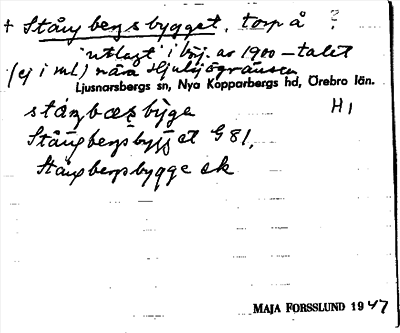 + Stångbergsbygget, torp å ?
utlagt i börj. av 1900-talet
(ej i ml) nära Hjulsjögränsen
Ljusnarsbergs sn, Nya Kopparbergs hd, Örebro län.
stångbæsbyge H 1
Stångbergsbygget G 81,
Stångbergsbygge ek
MAJA FORSSLUND 1947